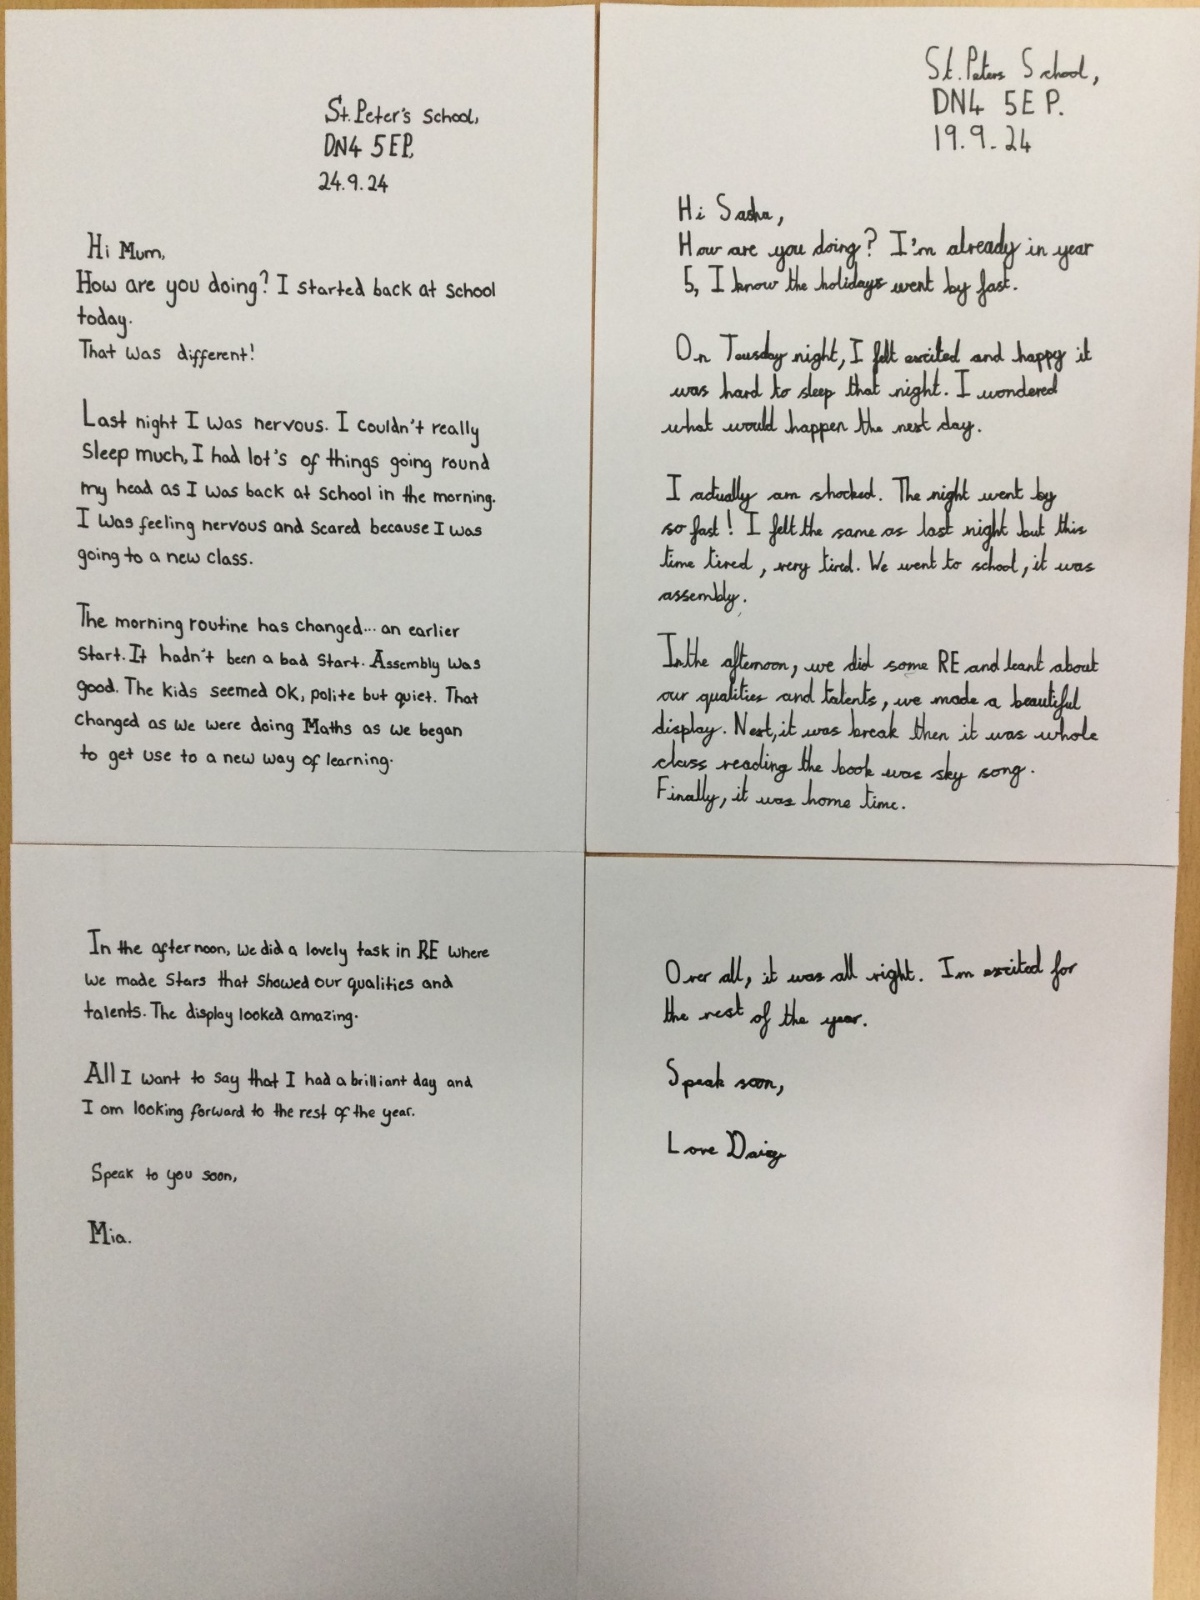 St. Peter's School,
DN4 5EP,
24.9.24
Hi Mum,
How are you doing? I started back at school
today.
That was different!
Last night I was nervous. I couldn't really
sleep much, I had lot's of things going round
my head as I was back at school in the morning.
I was feeling nervous and scared because I was
going to a new class.
The morning routine has changed... an earlier
start. It hadn't been a bad start. Assembly was
good. The kids seemed OK, polite but quiet. That
changed as we were doing Maths as we began
to get use to a new way of learning.
In the afternoon, we did a lovely task in RE where
we made stars that showed our qualities and
talents. The display looked amazing.
All I want to say that I had a brilliant day and
I am looking forward to the rest of the year.
Speak to you soon,
Mia.
St. Peters School,
DN4 5EP.
19.9.24
Hi Sasha,
How are you doing? I'm already in year
5, I know the holidays went by fast.
On Tousday night, I felt excited and happy it
was hard to sleep that night. I wondered
what would happen the next day.
I actually am shocked. The night went by
so fast! I felt the same as last night but this
time tired, very tired. We went to school, it was
assembly.
In the afternoon, we did some RE and leant about
our qualities and talents, we made a beautiful
display. Next, it was break then it was whole
class reading the book was sky song.
Finally, it was home time.
Over all, it was all right. Im excited for
the rest of the year.
Speak soon,
Love Daisy